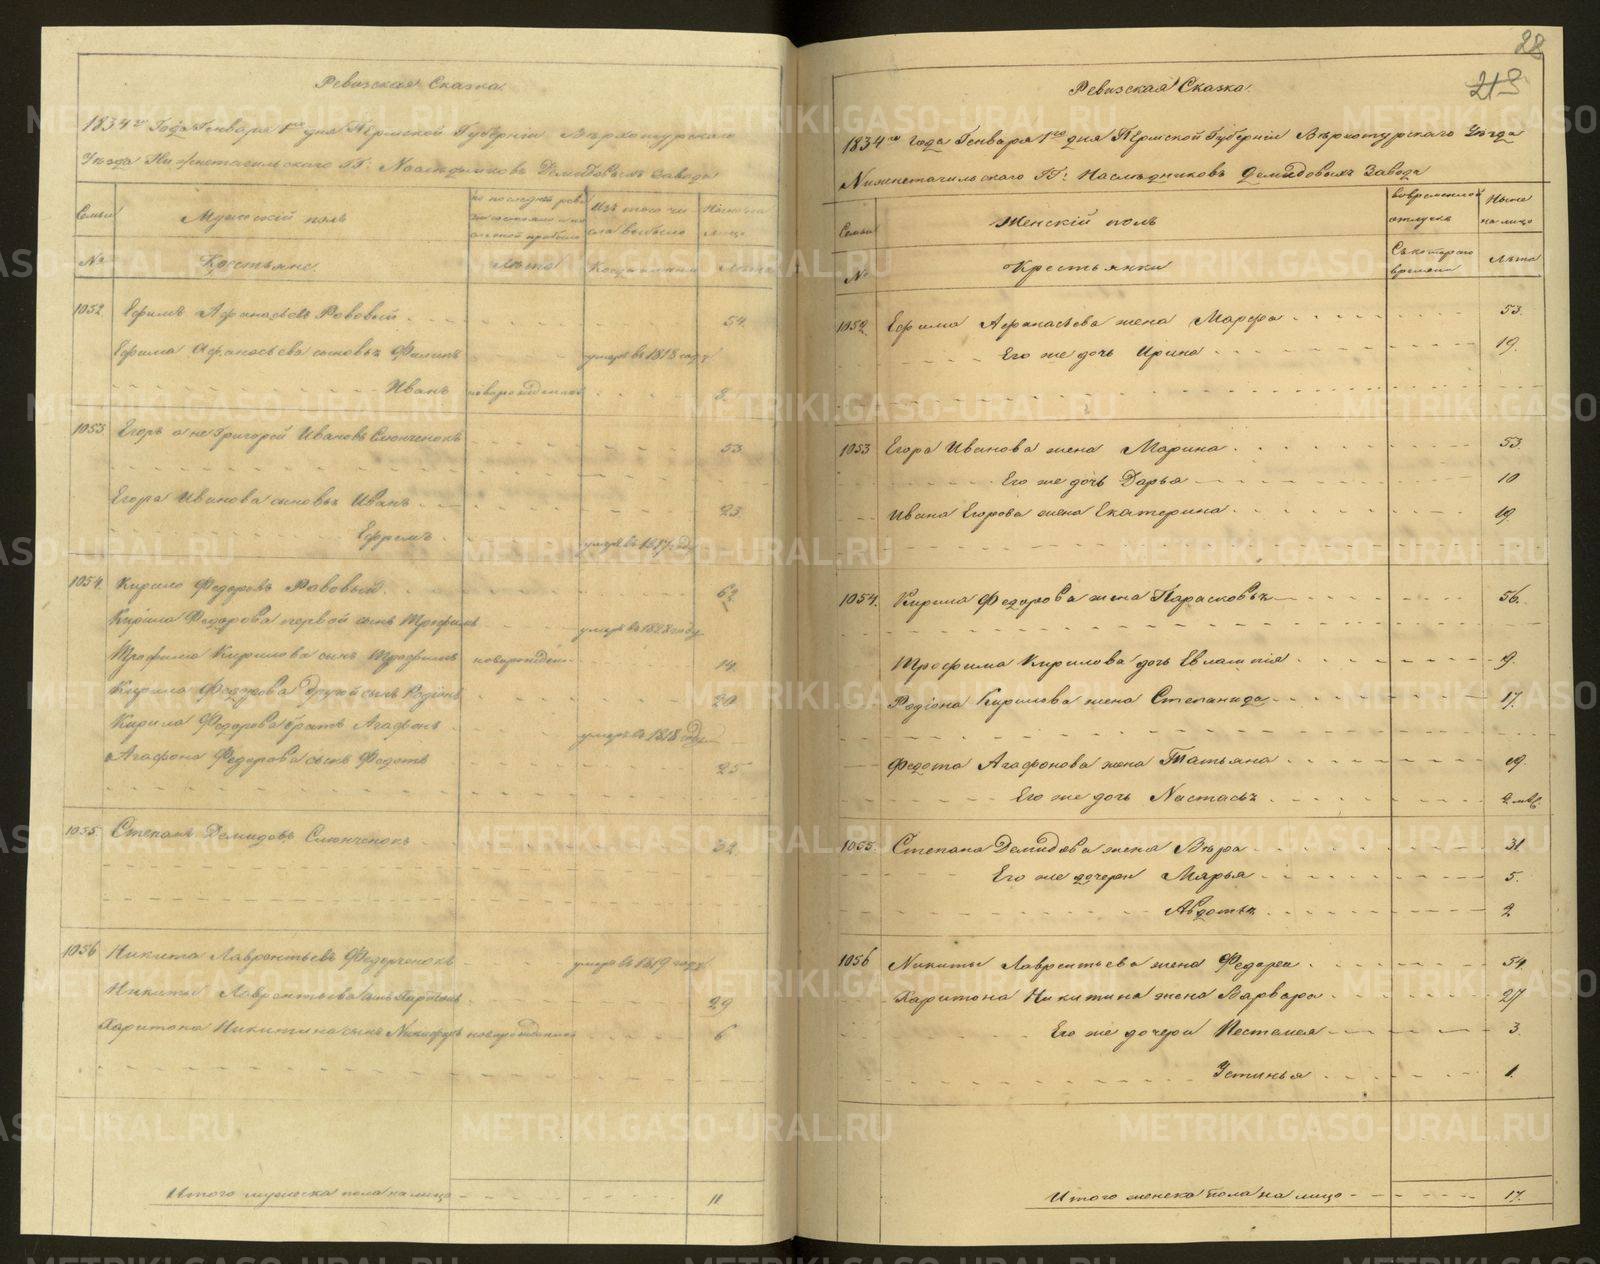 Ревизская Сказка
1834го Года Генваря 1го дня Пермской Губернiи Верхотурскаго
Уезда Нижнетагильскаго ГГ: Наследниковъ Демидовыхъ Завода
Семьи
Мужескiй полъ
Изъ того числа выбыло
Ныне на лицо
№
Крестьяне
Лета
Когда именно
Лета
1052. Ефимъ Афанасьевъ Рововый 54.
Ефима Афанасьева сыновья Филипъ умеръ въ 1818 году
Иванъ новорожденной 3.
1053 Егоръ а не Григорей Ивановъ Слюнченокъ 53
Егора Иванова сыновья Иванъ 23
Ефремъ умеръ въ 1817 году
1054. Кирило Федоровъ Рововый 62
Кирила Федорова первой сынъ Трофимъ умеръ въ 1828 году
Трофима Кирилова сынъ Трофимъ новорожден 14.
Кирила Федорова другой сынъ Родiонъ 20
Кирила Федорова братъ Агафонъ умеръ въ 1818 году
Агафона Федорова сынъ Федотъ 25
1055 Степанъ Демидовъ Слюнченокъ 32
1056 Никита Лаврентьевъ Федорченокъ умеръ въ 1819 году
Никиты Лаврентьева сынъ Харитонъ 29
Харитона Никитина сынъ Никифоръ новорожденной 6
Итого мужеска пола на лицо 11
28
218
Ревизская Сказка
1834го Года Генваря 1го дня Пермской Губернiи Верхотурскаго Уезда
Нижнетагильскаго ГГ: Наследниковъ Демидовыхъ Завода
Семьи
Женскiй полъ
Во временной отлучке
Ныне на лицо
№
Крестьянки
Съ котораго времени
Лета
1052 Ефима Афанасьева жена Марфа 53.
Его же дочь Ирина 19.
1053 Егора Иванова жена Марина 53.
Его же дочь Дарья 10
Ивана Егорова жена Екатерина 19.
1054. Кирила Федорова жена Парасковья 56.
Трофима Кирилова дочь Евлампiя 9.
Родiона Кирилова жена Степанида 17.
Федота Агафонова жена Татьяна 19.
Его же дочь Настасья 2. мес.
1055. Степана Демидова жена Вера 31.
Его же дочери Марья 5.
Авдотья 2
1056 Никиты Лаврентьева жена Федора 54.
Харитона Никитина жена Варвара 27
Его же дочери Пестемея 3.
Устинья 1.
Итого женска пола на лицо 17.
METRIKI.GASO-URAL.RU